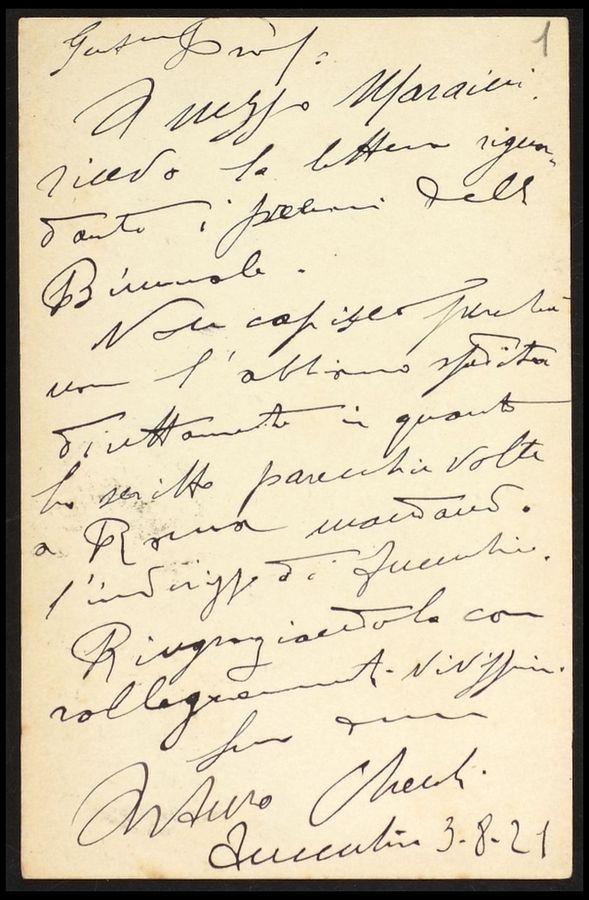 1
Prof.
A mezzo Maraini
ricevo la lettera riguar-
dante i premi della
Biennale.
Non capisco perché
non l'abbiano spedita
direttamente in quanto
ho scritto parecchie volte
a Roma mandando
l'indirizzo di
Ringraziandola con
rallegramenti vivissimi
suo
Arturo
3-8-21